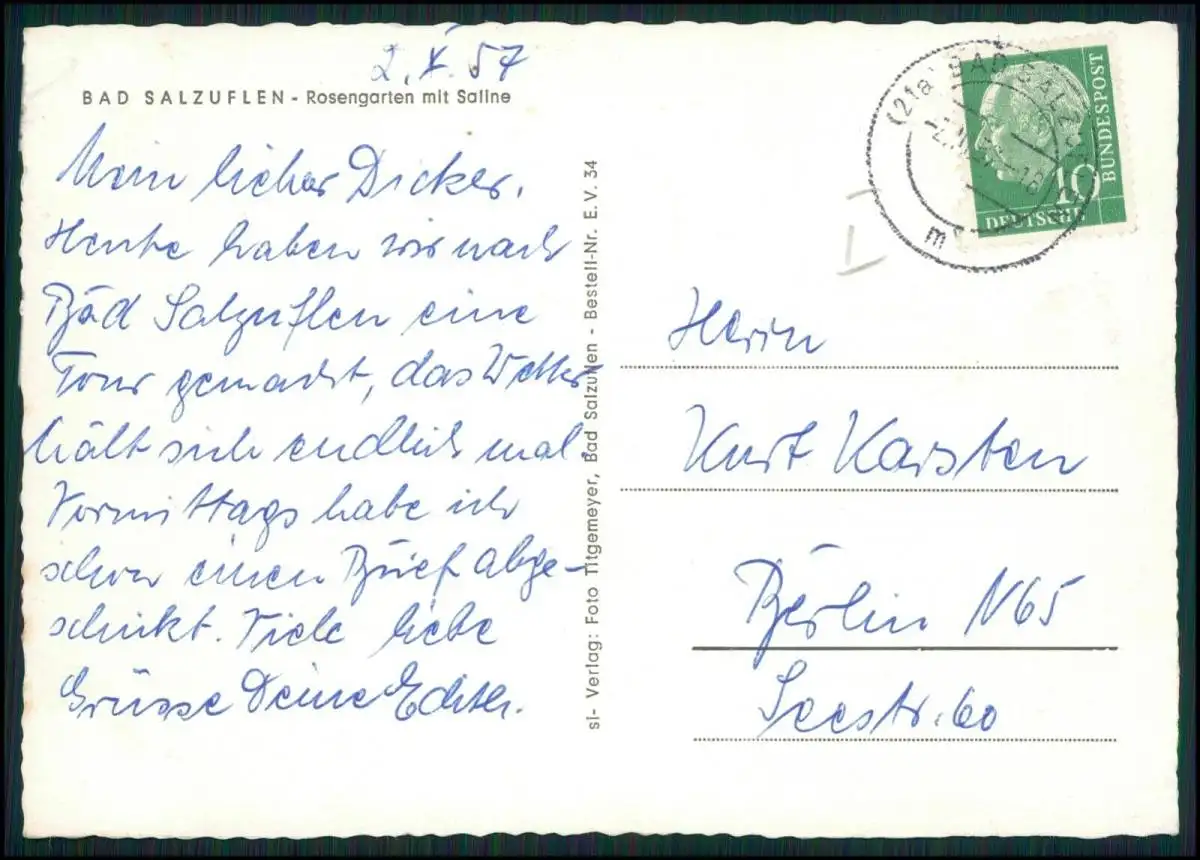 2. X. 57
BAD SALZUFLEN - Rosengarten mit Saline
Mein lieber Dicker.
Heute haben wir nach
Bad Salzuflen eine
Tour gemacht, das Wetter
hält sich endlich mal.
Vormittags habe ich
schon einen Brief abge-
schickt. Viele liebe
Grüsse Deine Edith.
sl- Verlag: Foto Titgemeyer, Bad Salzuflen - Bestell-Nr. E. V. 34
(21a) BAD SALZUFLEN
m
DEUTSCHE
BUNDESPOST
10
Herrn
Kurt Karsten
Berlin N65
Seestr. 60